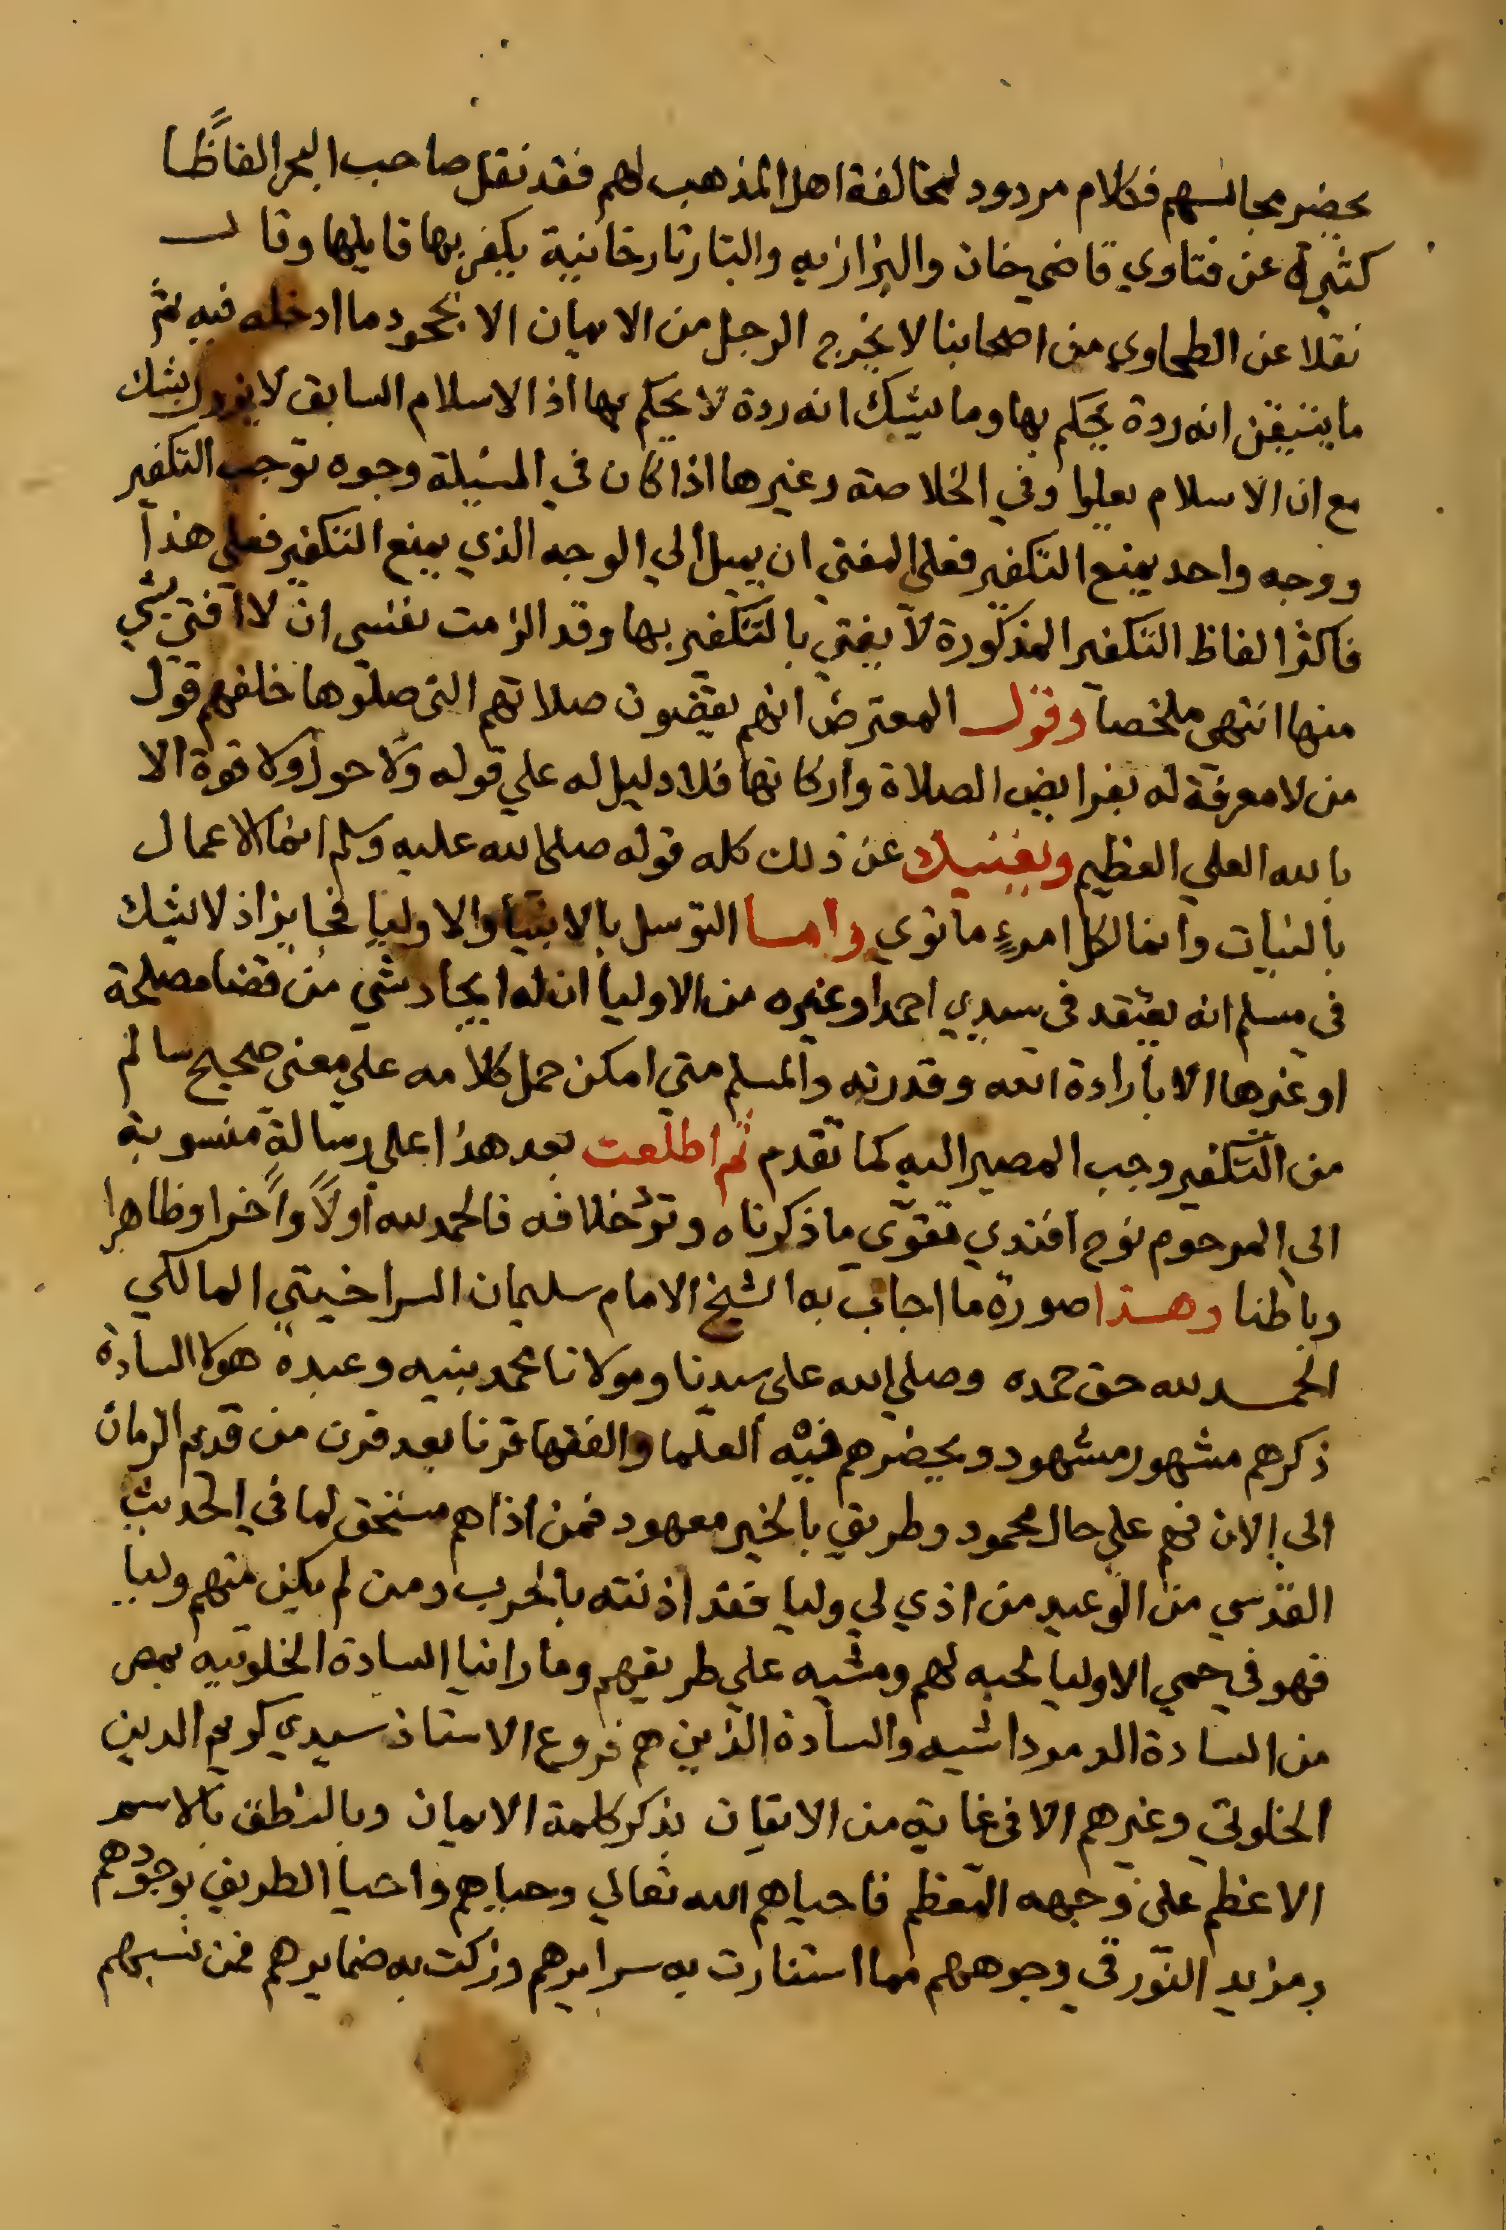 يحضر مجالسهم فكلام مردود لمخالفة اهل المذهب لهم فقد نقل صاحب البحر الفاظًا
كثيرة عن فتاوي قاضيخان والبزازيه والتتارتارخانية يكفر بها قايلها وقال
نقلا عن الطحاوي من اصحابنا لا يخرج الرجل من الايمان الا بجحود ما ادخله فيه ثم
ما يتيقن انه ردة يحكم بها وما يشك انه ردة لا يحكم بها اذ الاسلام السابق لا يزول بشك
مع ان الاسلام يعلوا وفي الخلاصة وغيرها اذا كان في المسيلة وجوه توجب التكفير
ووجه واحد يمنع التكفير فعلي المفتي ان يميل الي الوجه الذي يمنع التكفير فعلي هذا
فاكثر الفاظ التكفير المذكورة لا يفتي بالتكفير بها وقد الزمت نفسي ان لا افتي بشي
منها انتهي ملخصا وقول المعترض انهم يقضون صلاتهم التي صلوها خلفهم قول
من لا معرفة له بفرايض الصلاة واركانها فلا دليل له علي قوله ولا حول ولا قوة الا
بالله العلي العظيم ويغنيك عن ذلك كله قوله صلي الله عليه وسلم انما الاعمال
بالنيات وانما لكل امرءٍ ما نوي واما التوسل بالانبيا والاوليا فجايز اذ لا يشك
في مسلم انه يعتقد في سيدي احمد او غيره من الاوليا ان له ايجاد شي من قضا مصلحة
او غيرها الا بارادة الله وقدرته والمسلم متي امكن حمل كلامه علي معني صحيح سالم
من التكفير وجب المصير اليه كما تقدم ثم اطلعت بعد هذا علي رسالة منسوبة
الي المرحوم نوح افندي تقوّي ما ذكرناه وترد خلافه فالحمد لله اولًا واًخرا وظاهرا
وباطنا وهذا صورة ما اجاب به الشيخ الامام سليمان الشبراخيتي المالكي
الحمد لله حق حمده وصلي الله علي سيدنا ومولانا محمد نبيه وعبده هولا السادة
ذكرهم مشهور مشهود ويحضرهم فيه العلما والفقها قرنا بعد قرن من قديم الزمان
الي الان فهم علي حال محمود وطريق بالخير معهود فمن اذاهم مستحق لما في الحديث
القدسي من الوعيد من اذي لي وليا فقد اذنته بالحرب ومن لم يكن منهم وليا
فهو في حمي الاوليا لحبه لهم ومشيه علي طريقهم وما راينا السادة الخلوتيه بمصر
من السادة الدمرداشيه والسادة الذين هم فروع الاستاذ سيدي كريم الدين
الخلوتي وغيرهم الا في غاية من الاتقان بذكر كلمة الايمان وبالنطق بالاسم
الاعظم علي وجهه المعظم فاحياهم الله تعالي وحياهم واحيا الطريق بوجودهم
ومزيد النور في وجوههم مما استنارت به سرايرهم وزكت به ضمايرهم فمن نسبهم